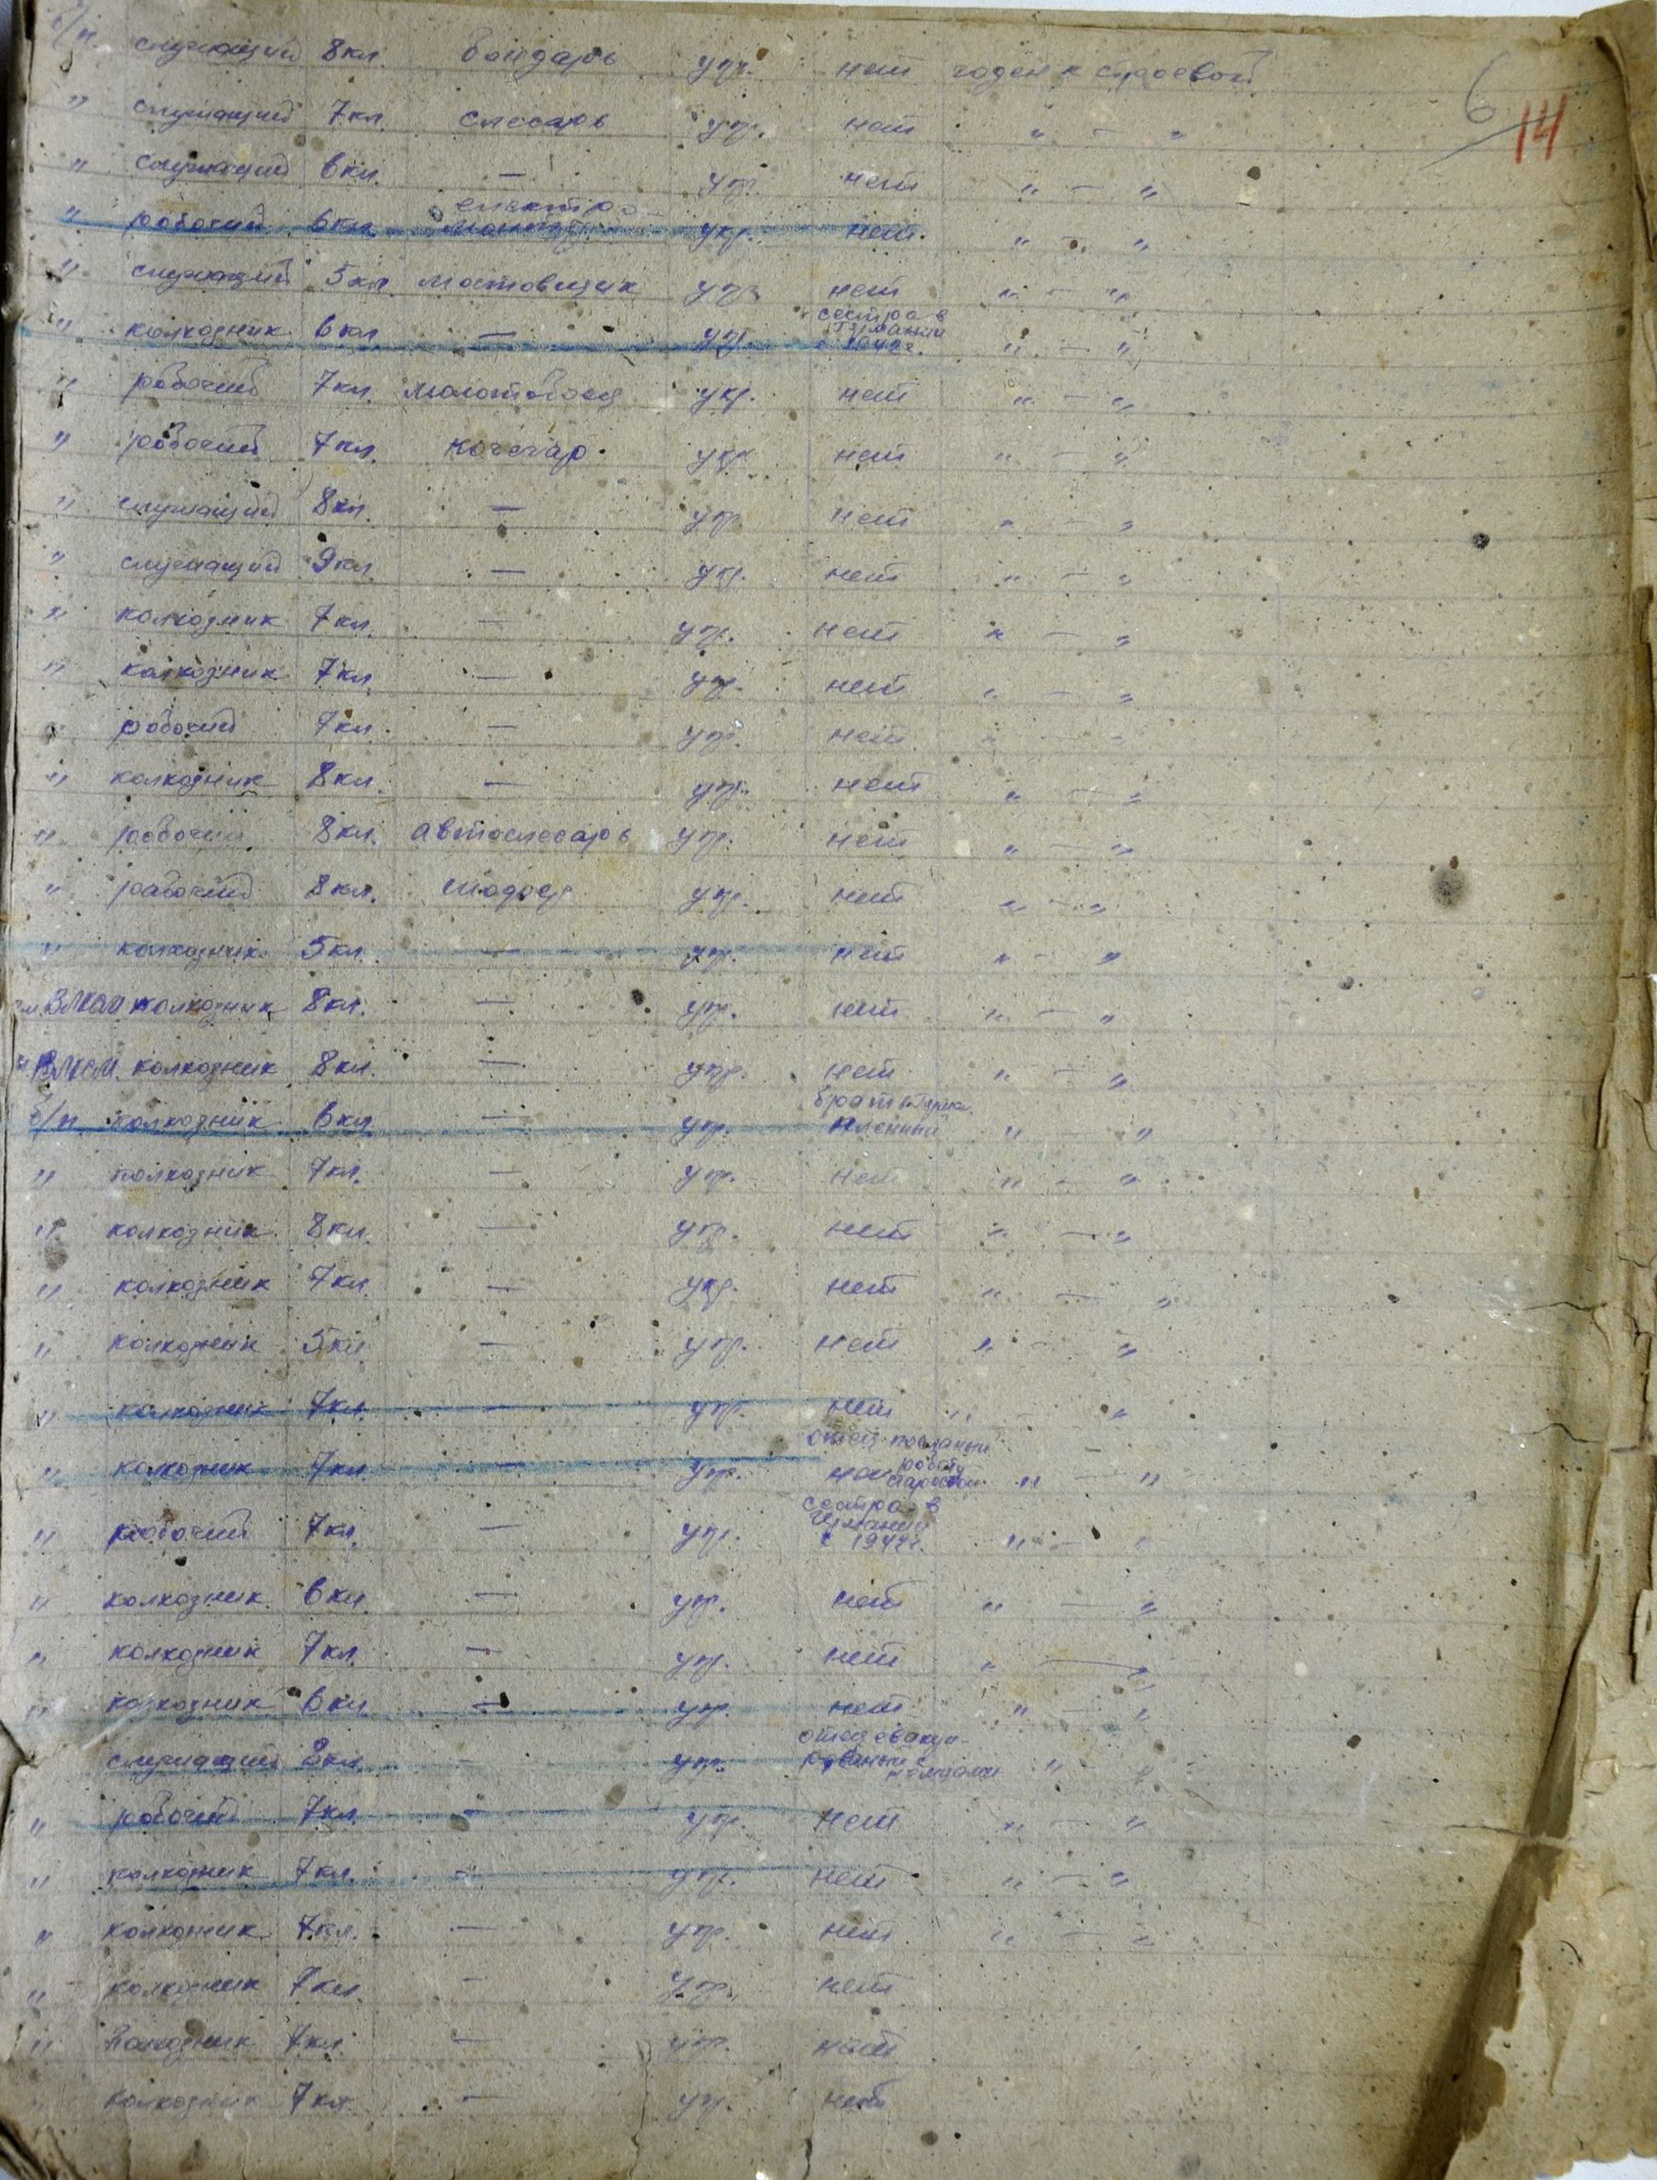 б/п. служащий 8кл. бондарь укр. нет годен к строевой
6 14
" служащий 7кл. слесарь укр. нет " — "
" служащий 6кл. — укр. нет " — "
" рабочий 6кл. електро-монтер укр. нет. " — "
" служащий 5кл. мостовщик укр. нет " — "
" колхозник 6кл. — укр. сестра в Германии 1942г. " — "
" рабочий 7кл. молотобоец укр. нет " — "
" рабочий 7кл. кочегар укр. нет " — "
" служащий 8кл. — укр. нет " — "
" служащий 9кл. — укр. нет " — "
" колхозник 7кл. — укр. нет " — "
" колхозник 7кл. — укр. нет " — "
" рабочий 7кл. — укр. нет " — "
" колхозник 8кл. — укр. нет " — "
" рабочий 8кл. автослесарь укр. нет " — "
" рабочий 8кл. укр. нет " — "
" колхозник 5кл. — укр. нет " — "
чл. ВЛКСМ колхозник 8кл. — укр. нет " — "
чл. ВЛКСМ. колхозник 8кл. — укр. нет " — "
б/п колхозник 6кл. — укр. брат " — "
" колхозник 7кл. — укр. нет " — "
" колхозник 8кл. — укр. нет " — "
" колхозник 7кл. — укр. нет " — "
" колхозник 5кл. — укр. нет " — "
" колхозник 7кл. — укр. нет " — "
" колхозник 7кл. — укр. отец старостой " — "
" рабочий 7кл. — укр. сестра в Германии с 1942г. " — "
" колхозник 6кл. — укр. нет " — "
" колхозник 7кл. — укр. нет " — "
" колхозник 6кл. — укр. нет " — "
служащий 8кл. - укр. отец эвакуированный с немцами " — "
" рабочий 7кл. - укр. нет " — "
" колхозник 7кл. — укр. нет " — "
" колхозник 7кл. — укр. нет " — "
" колхозник 7кл. — укр. нет
" колхозник 7кл. — укр. нет
" колхозник 7кл. — укр. нет